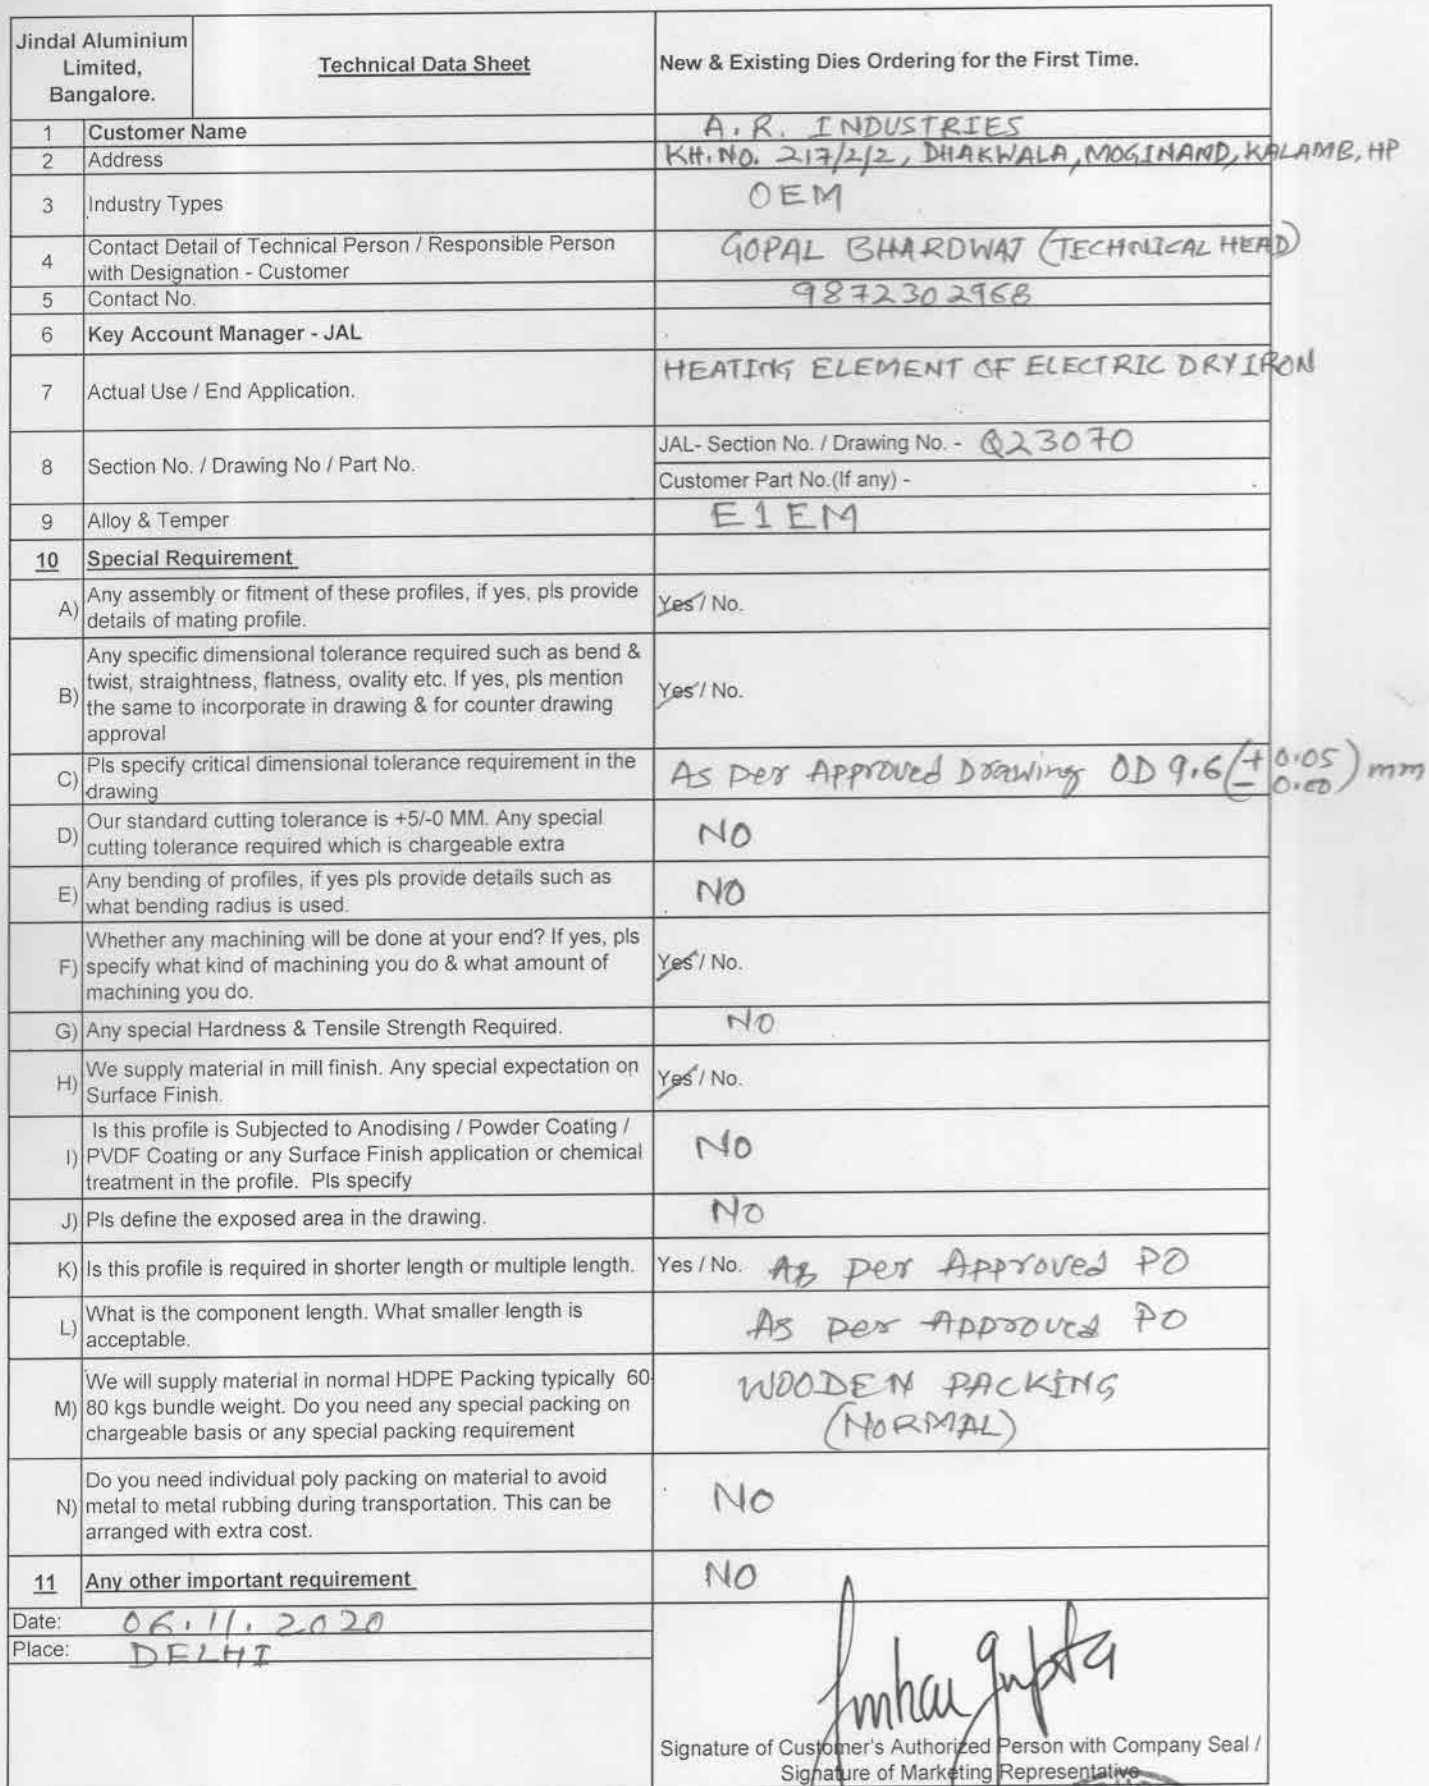 Jindal Aluminium
Limited,
Bangalore.
Technical Data Sheet
New & Existing Dies Ordering for the First Time.
1 Customer Name A.R. INDUSTRIES
2 Address KH.NO. 217/2/2, DHAKWALA, MOGINAND, KALAMB, HP
3 Industry Types OEM
4 Contact Detail of Technical Person / Responsible Person
with Designation - Customer
GOPAL BHARDWAJ (TECHNICAL HEAD)
5 Contact No. 9872302968
6 Key Account Manager - JAL
7 Actual Use / End Application.
HEATING ELEMENT OF ELECTRIC DRY IRON
8 Section No. / Drawing No / Part No.
JAL- Section No. / Drawing No. - Q23070
Customer Part No.(If any) -
9 Alloy & Temper E1EM
10 Special Requirement
A) Any assembly or fitment of these profiles, if yes, pls provide
details of mating profile.
Yes / No.
B) Any specific dimensional tolerance required such as bend &
twist, straightness, flatness, ovality etc. If yes, pls mention
the same to incorporate in drawing & for counter drawing
approval
Yes / No.
C) Pls specify critical dimensional tolerance requirement in the
drawing
As per Approved Drawing OD 9.6 (+0.05 -0.00) mm
D) Our standard cutting tolerance is +5/-0 MM. Any special
cutting tolerance required which is chargeable extra
NO
E) Any bending of profiles, if yes pls provide details such as
what bending radius is used.
NO
F) Whether any machining will be done at your end? If yes, pls
specify what kind of machining you do & what amount of
machining you do.
Yes / No.
G) Any special Hardness & Tensile Strength Required.
NO
H) We supply material in mill finish. Any special expectation on
Surface Finish.
Yes / No.
I) Is this profile is Subjected to Anodising / Powder Coating /
PVDF Coating or any Surface Finish application or chemical
treatment in the profile. Pls specify
NO
J) Pls define the exposed area in the drawing.
NO
K) Is this profile is required in shorter length or multiple length.
Yes / No. As per Approved PO
L) What is the component length. What smaller length is
acceptable.
As per Approved PO
M) We will supply material in normal HDPE Packing typically 60-
80 kgs bundle weight. Do you need any special packing on
chargeable basis or any special packing requirement
WOODEN PACKING
(NORMAL)
N) Do you need individual poly packing on material to avoid
metal to metal rubbing during transportation. This can be
arranged with extra cost.
NO
11 Any other important requirement
NO
Date: 06.11.2020
Place: DELHI
Gupta
Signature of Customer's Authorized Person with Company Seal /
Signature of Marketing Representative